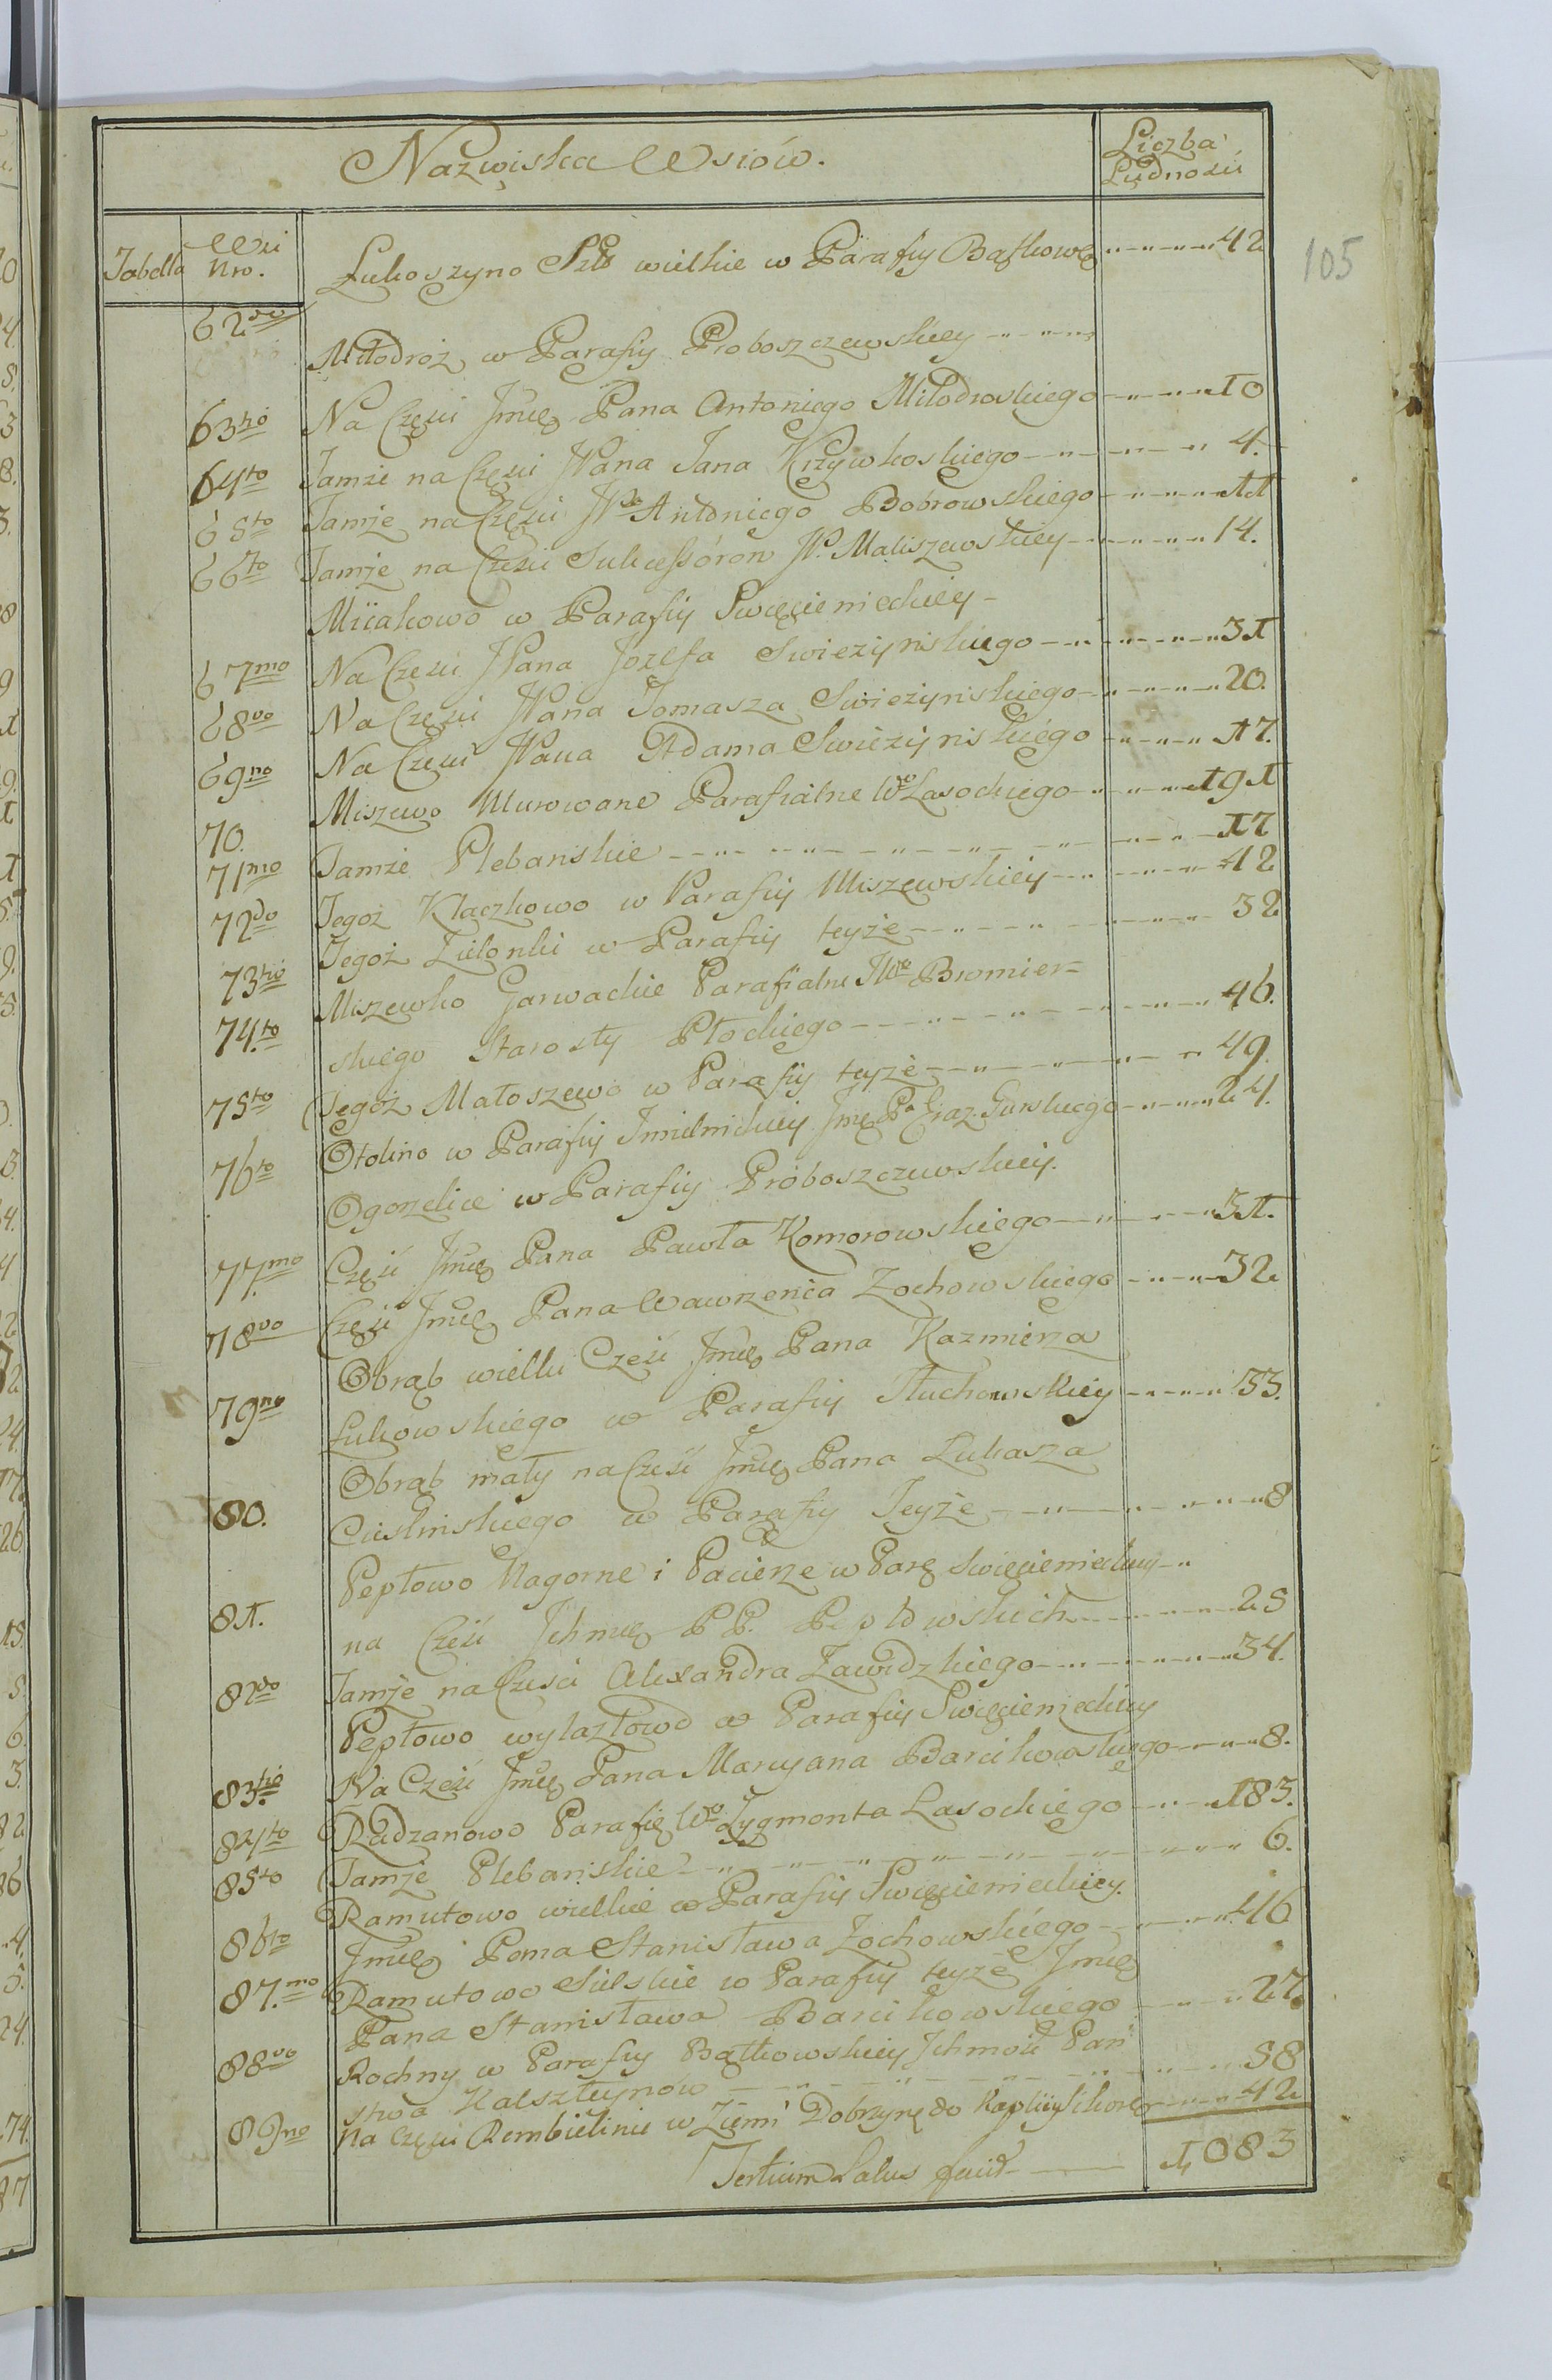 Nazwiska Wsiów.
Liczba
Ludności
Tabella
Wsi
Nro.
105
62do Łukoszyno wielkie w Parafiy Bąthowę 42
Miłodroż w Parafiy Proboszczewskiey
63tio Na Częsci Jmę Pana Antoniego Miłodroskiego 10
64to Tamże na Częsci JPana Jana Krzywkoskiego 4.
65to Tamże na Częsci JPa Antoniego Bobrowskiego 11
66to Tamże na Częsci Sukcessorow JP. Maliszewskiey 14.
Miiakowo w Parafiy Swięcienieckiey
67mo Na Częsci JPana Jozefa Swiezynskiego 31
68vo Na Częsci JPana Tomasza Swieżynskiego 20.
69no Na Częsci JPana Adama Swieżynskiego 17.
70. Miszewo Murowane Parafialne Wo Lasockiego 191
71mo Tamże Plebanskie 17
72do Tegoż Kłaczkowo w Parafiy Miszewskiey 42
73tio Tegoż Zielonki w Parafiy teyże 32
74.to Miszewko Garwackie Parafialne JWo Bromier=
skiego Starosty Płockiego 46.
75to Tegoż Małoszewo w Parafiy teyże 49.
76to Otolino w Parafiy Imielnickiey Jmę Pa Graz. Gurskiego 24.
Ogorzelice w Parafiy Proboszczewskiey.
77.mo Częsć Jmę Pana Pawła Komorowskiego 31.
78vo Częsć Jmę Pana Wawrzenca Zochowskiego 32
79no Obrąb wielki Częsć Jmę Pana Kazmierza
Łukowskiego w Parafiy Tłuchowskiey 53.
80. Obrąb mały na Częsć Jmę Pana Łukasza
Cieslinskiego w Parafiy Teyże 8
81. Pepłowo Nagorne i Pacierze w Parę Swięcienieckiey
na Częsć Ichmę PP. Pepłowskich 25
82do Tamże na Częsci Alexandra Zawidzkiego 34.
Pepłowo wylazłowo w Parafiy Swięcienieckiey
83.tio Na Częsć Jmę Pana Maryana Barcikowskiego 8.
84to Radzanowo Parafię Wo Zygmonta Lasockiego 183.
85to Tamże Plebanskie 6.
86to Ramutowo wielkie w Parafiy Swięcienieckiey.
Jmę Pana Stanisława Zochowskiego 46
87.mo Ramutowo Sielskie w Parafiy teyże Jmę
Pana Stanisława Barcikowskiego 27.
88vo Rochny w Parafiy Bąthowskiey Ichmość Pań
stwa Kalsztynów 58
89no Na Częsci Rembielinie w Ziemi Dobrzynę do 42
Tertium Latus facit 1083